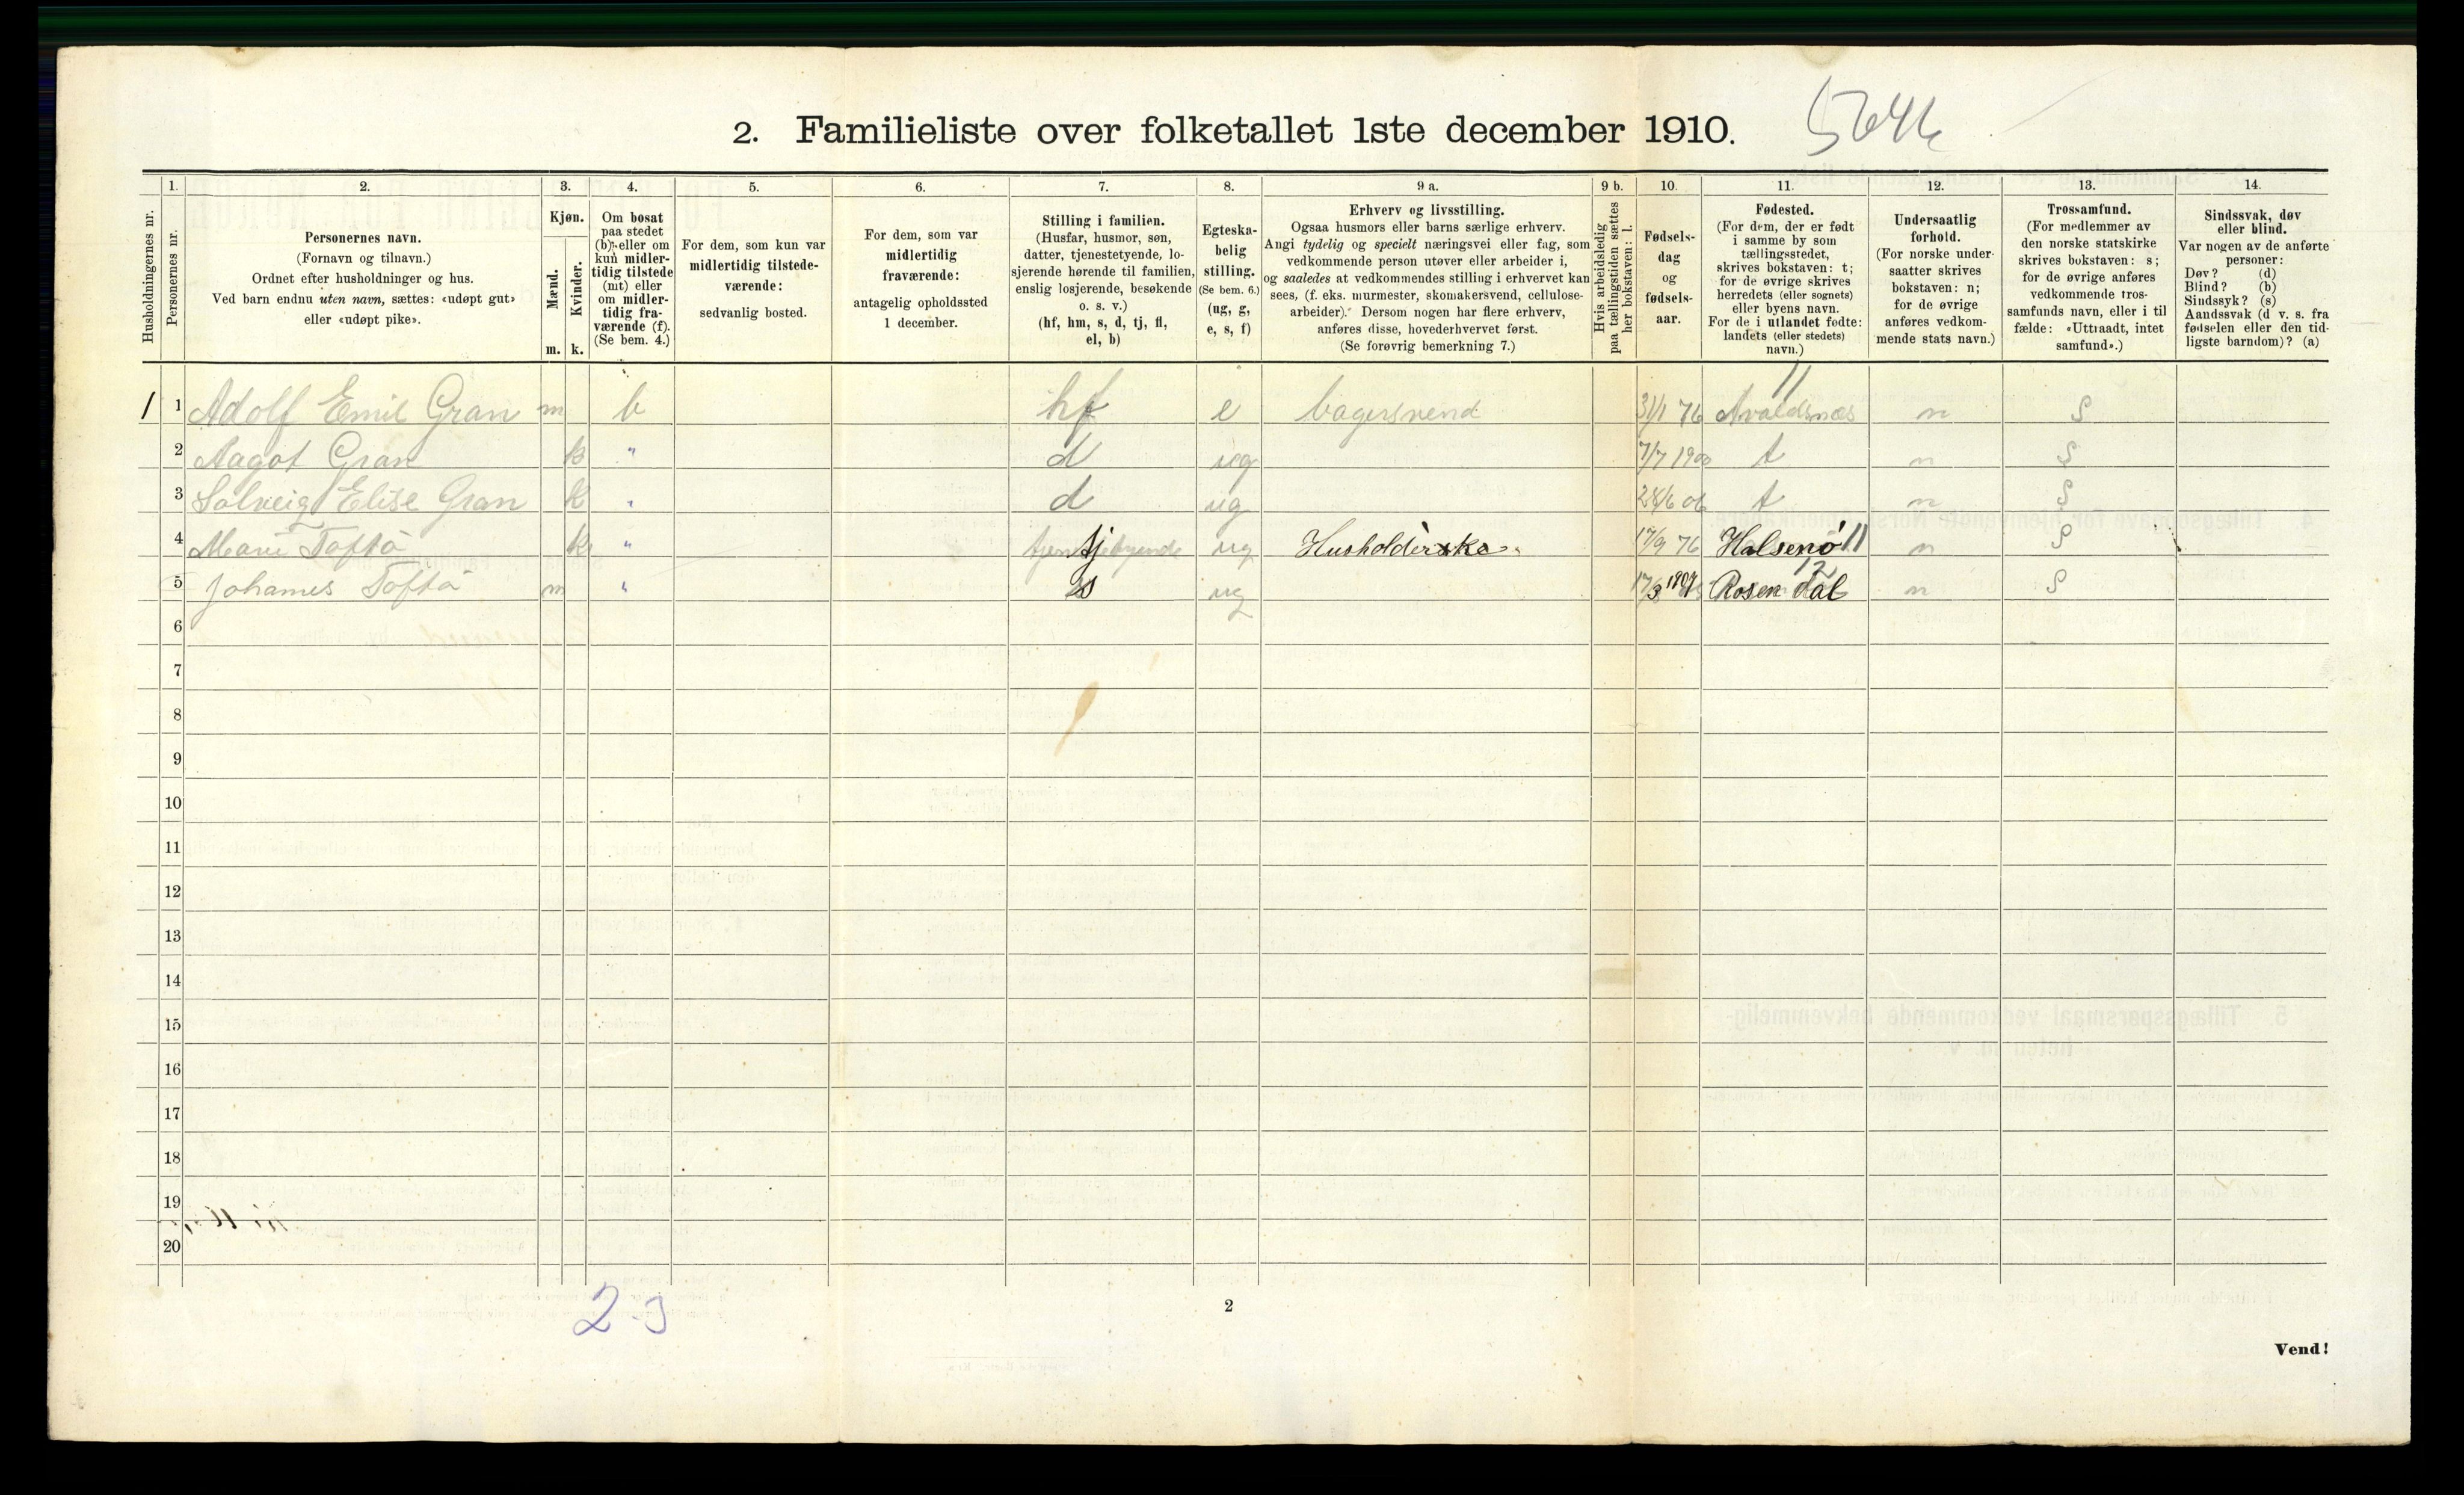 2. Familieliste over folketallet 1ste december 1910.
Husholdningernes nr.
1.
Personernes nr.
2.
Personernes navn.
(Fornavn og tilnavn.)
Ordnet efter husholdninger og hus.
Ved barn endnu uten navn, sættes: «udøpt gut»
eller «udøpt pike».
3.
Kjøn.
Mænd.
Kvinder.
m.
k.
4.
Om bosat
paa stedet
(b) eller om
kun midler-
tidig tilstede
(mt) eller
om midler-
tidig fra-
værende (f).
(Se bem. 4.)
5.
For dem, som kun var
midlertidig tilstede-
værende:
sedvanlig bosted.
6.
For dem, som var
midlertidig
fraværende:
antagelig opholdssted
1 december.
7.
Stilling i familien.
(Husfar, husmor, søn,
datter, tjenestetyende, lo-
sjerende hørende til familien,
enslig losjerende, besøkende
o. s. v.)
(hf, hm, s, d, tj, fl,
el, b)
8.
Egteska-
belig
stilling.
(Se bem. 6.)
(ug, g,
e, s, f)
9 a.
Erhverv og livsstilling.
Ogsaa husmors eller barns særlige erhverv.
Angi tydelig og specielt næringsvei eller fag, som
vedkommende person utøver eller arbeider i,
og saaledes at vedkommendes stilling i erhvervet kan
sees, (f. eks. murmester, skomakersvend, cellulose-
arbeider). Dersom nogen har flere erhverv,
anføres disse, hovederhvervet først.
(Se forøvrig bemerkning 7.)
9 b.
Hvis arbeidsledig
paa tællingstiden sættes
her bokstaven: l.
10.
Fødsels-
dag
og
fødsels-
aar.
11.
Fødested.
(For dem, der er født
i samme by som
tællingsstedet,
skrives bokstaven: t;
for de øvrige skrives
herredets (eller sognets)
eller byens navn.
For de i utlandet fødte:
landets (eller stedets)
navn.)
12.
Undersaatlig
forhold.
(For norske under-
saatter skrives
bokstaven: n;
for de øvrige
anføres vedkom-
mende stats navn.)
13.
Trossamfund.
(For medlemmer av
den norske statskirke
skrives bokstaven: s;
for de øvrige anføres
vedkommende tros-
samfunds navn, eller i til
fælde: «Uttraadt, intet
samfund».)
14.
Sindssvak, døv
eller blind.
Var nogen av de anførte
personer:
Døv? (d)
Blind? (b)
Sindssyk? (s)
Aandssvak (d v. s. fra
fødselen eller den tid-
ligste barndom)? (a)
11
1 1 Adolf Emil Gran m b hf e bagersvend 31/1 76 Avaldsnæs n S
2 Aagot Gran k " d ug 7/7 1900 t n S
3 Solveig Elise Gran k " d ug 28/6 06 t n S
4 Marie Toftø k " tj ug Husholderske 17/9 76 Halsenø 11 n S
12
5 Johannes Toftø m " s ug 17/3 1907 Rosendal n S
6
7
8
9
10
11
12
13
14
15
16
17
18
19
20
2
Vend!